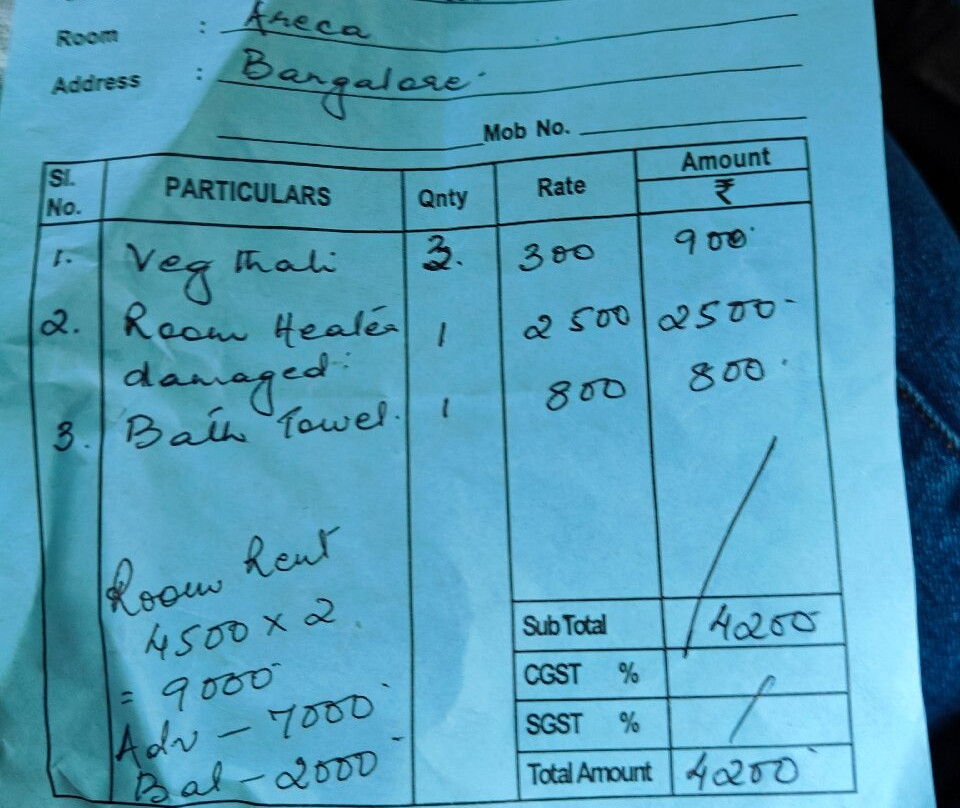 Room : Areca
Address : Bangalore.
Mob No.
Sl. No. PARTICULARS Qnty Rate Amount ₹
1. Veg Thali 3. 300 900
2. Room Heater 1 2500 2500
damaged
3. Bath Towel. 1 800 800
Room Rent
4500 x 2
= 9000
Adv - 7000
Bal - 2000
Sub Total 4200
CGST %
SGST %
Total Amount 4200